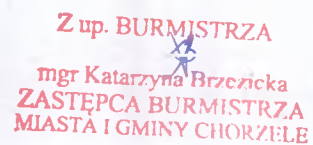 Z up. BURMISTRZA
mgr Katarzyna Brzezicka
ZASTĘPCA BURMISTRZA
MIASTA I GMINY CHORZELE